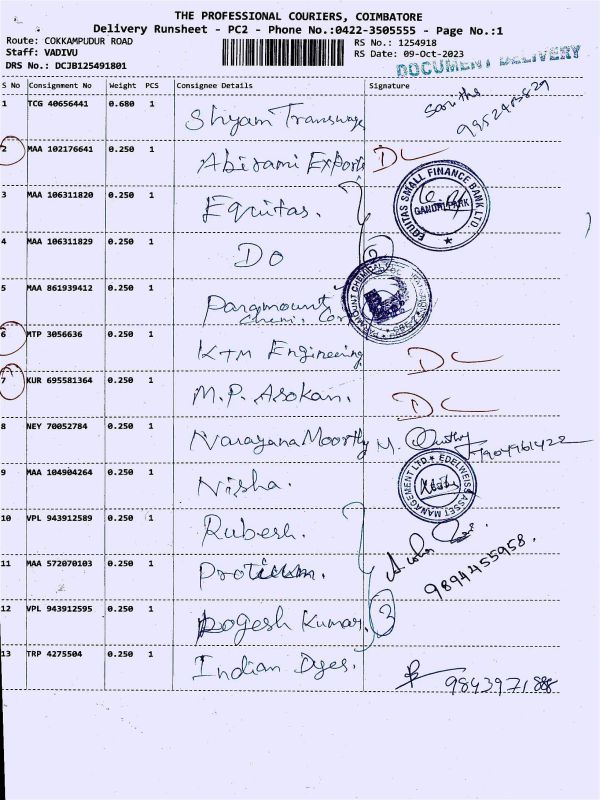 THE PROFESSIONAL COURIERS, COIMBATORE
Delivery Runsheet - PC2 - Phone No.:0422-3505555 - Page No.:1
Route: COKKAMPUDUR ROAD RS No.: 1254918
Staff: VADIVU RS Date: 09-Oct-2023
DRS No.: DCJB125491801 DOCUMENT DELIVERY
S No Consignment No Weight PCS Consignee Details Signature
1 TCG 40656441 0.680 1 Shyam Transways Saritha
2 MAA 102176641 0.250 1 Abirami Exports DC
3 MAA 106311820 0.250 1 Equitas. EQUITAS SMALL FINANCE BANK LTD GANDHI PARK
4 MAA 106311829 0.250 1 Do 2
5 MAA 861939412 0.250 1 Paramount
Chemi. Corp PARAMOUNT CHEMICAL
6 MTP 3056636 0.250 1 K+M Engineering DC
7 KUR 695581364 0.250 1 M.P. Asokan. DC
8 NEY 70052784 0.250 1 Narayana Moorthy M. 7904961422
9 MAA 104904264 0.250 1 Nisha. EDELWEISS ASSET MANAGEMENT LTD.
10 VPL 943912589 0.250 1 Rubesh.
11 MAA 572070103 0.250 1 Protium. 9894455958.
12 VPL 943912595 0.250 1 Logesh Kumar. 3
13 TRP 4275504 0.250 1 Indian Dyes.